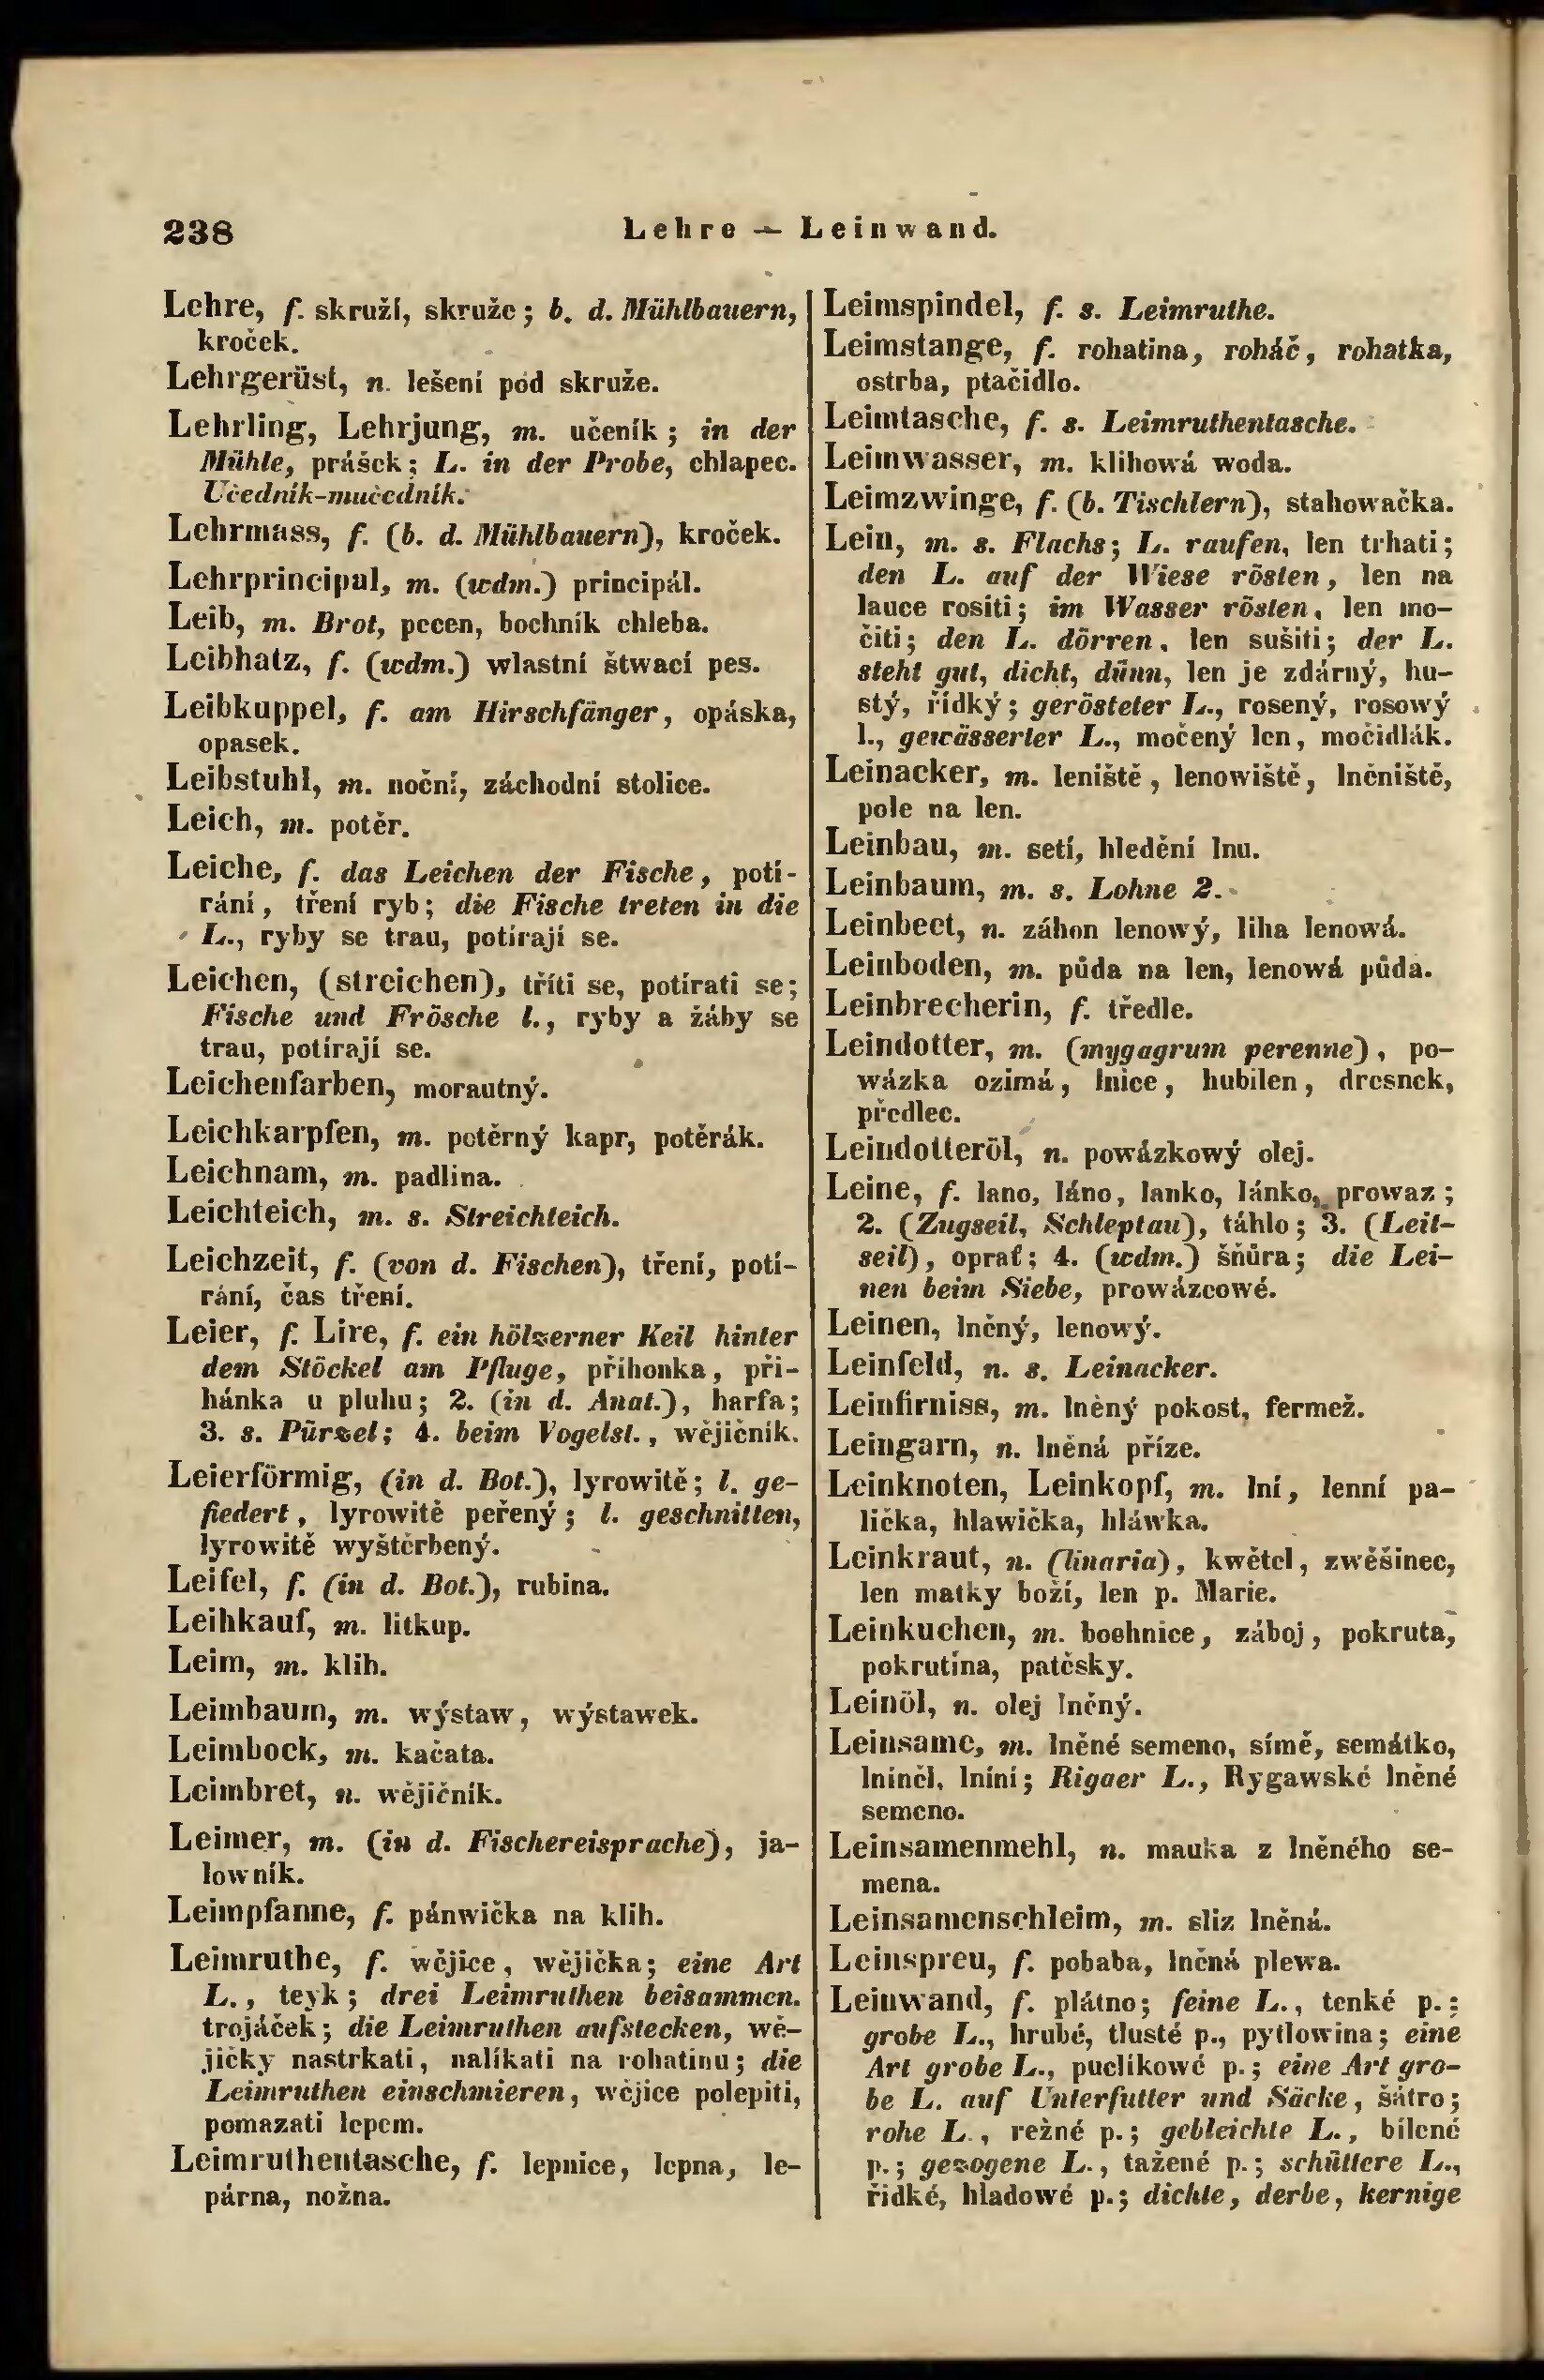 238
Lehre — Leinwand.
Lehre, f. skruží, skruže; b. d. Mühlbauern,
kroček.
Lehrgerüst, n. lešení pod skruže.
Lehrling, Lehrjung, m. učeník; in der
Mühle, prášek; L. in der Probe, chlapec.
Učedník-mučedník.
Lehrmass, f. (b. d. Mühlbauern), kroček.
Lehrprincipal, m. (wdm.) principál.
Leib, m. Brot, pecen, bochník chleba.
Leibhatz, f. (wdm.) wlastní štwací pes.
Leibkuppel, f. am Hirschfänger, opáska,
opasek.
Leibstuhl, m. noční, záchodní stolice.
Leich, m. potěr.
Leiche, f. das Leichen der Fische, potí-
rání, tření ryb; die Fische treten in die
L., ryby se trau, potírají se.
Leichen, (streichen), tříti se, potírati se;
Fische und Frösche l., ryby a žáby se
trau, potírají se.
Leichenfarben, morautný.
Leichkarpfen, m. potěrný kapr, potěrák.
Leichnam, m. padlina.
Leichteich, m. s. Streichteich.
Leichzeit, f. (von d. Fischen), tření, potí-
rání, čas tření.
Leier, f. Lire, f. ein hölzerner Keil hinter
dem Stöckel am Pfluge, příhonka, při-
hánka u pluhu; 2. (in d. Anat.), harfa;
3. s. Pürzel; 4. beim Vogelst., wějičník.
Leierförmig, (in d. Bot.), lyrowitě; l. ge-
fiedert, lyrowitě peřený; l. geschnitten,
lyrowitě wyštěrbený.
Leifel, f. (in d. Bot.), rubina.
Leihkauf, m. litkup.
Leim, m. klih.
Leimbaum, m. wýstaw, wýstawek.
Leimbock, m. kačata.
Leimbret, n. wějičník.
Leimer, m. (in d. Fischereisprache), ja-
lowník.
Leimpfanne, f. pánwička na klih.
Leimruthe, f. wějice, wějička; eine Art
L., teyk; drei Leimruthen beisammen.
trojáček; die Leimruthen aufstecken, wě-
jičky nastrkati, nalíkati na rohatinu; die
Leimruthen einschmieren, wějice polepiti,
pomazati lepem.
Leimruthentasche, f. lepnice, lepna, le-
párna, nožna.
Leimspindel, f. s. Leimruthe.
Leimstange, f. rohatina, roháč, rohatka,
ostrba, ptačidlo.
Leimtasche, f. s. Leimruthentasche.
Leimwasser, m. klihowá woda.
Leimzwinge, f. (b. Tischlern), stahowačka.
Lein, m. s. Flachs; L. raufen, len trhati;
den L. auf der Wiese rösten, len na
lauce rositi; im Wasser rösten, len mo-
čiti; den L. dörren, len sušiti; der L.
steht gut, dicht, dünn, len je zdárný, hu-
stý, řídký; gerösteter L., rosený, rosowý
l., gewässerter L., močený len, močidlák.
Leinacker, m. leniště, lenowiště, lněniště,
pole na len.
Leinbau, m. setí, hledění lnu.
Leinbaum, m. s. Lohne 2.
Leinbeet, n. záhon lenowý, liha lenowá.
Leinboden, m. půda na len, lenowá půda.
Leinbrecherin, f. tředle.
Leindotter, m. (mygagrum perenne), po-
wázka ozimá, lnice, hubilen, dresnek,
předlec.
Leindotteröl, n. powázkowý olej.
Leine, f. lano, láno, lanko, lánko, prowaz;
2. (Zugseil, Schleptau), táhlo; 3. (Leit-
seil), oprať; 4. (wdm.) šňůra; die Lei-
nen beim Siebe, prowázcowé.
Leinen, lněný, lenowý.
Leinfeld, n. s. Leinacker.
Leinfirniss, m. lněný pokost, fermež.
Leingarn, n. lněná příze.
Leinknoten, Leinkopf, m. lní, lenní pa-
lička, hlawička, hláwka.
Leinkraut, n. (linaria), kwětel, zwěšinec,
len matky boží, len p. Marie.
Leinkuchen, m. bochnice, záboj, pokruta,
pokrutina, patěsky.
Leinöl, n. olej lněný.
Leinsame, m. lněné semeno, símě, semátko,
lniněl, lníní; Rigaer L., Rygawské lněné
semeno.
Leinsamenmehl, n. mauka z lněného se-
mena.
Leinsamenschleim, m. sliz lněná.
Leinspreu, f. pobaba, lněná plewa.
Leinwand, f. plátno; feine L., tenké p.;
grobe L., hrubé, tlusté p., pytlowina; eine
Art grobe L., puclíkowé p.; eine Art gro-
be L. auf Unterfutter und Säcke, šátro;
rohe L., režné p.; gebleichte L., bílené
p.; gezogene L., tažené p.; schüttere L.,
řidké, hladowé p.; dichte, derbe, kernige